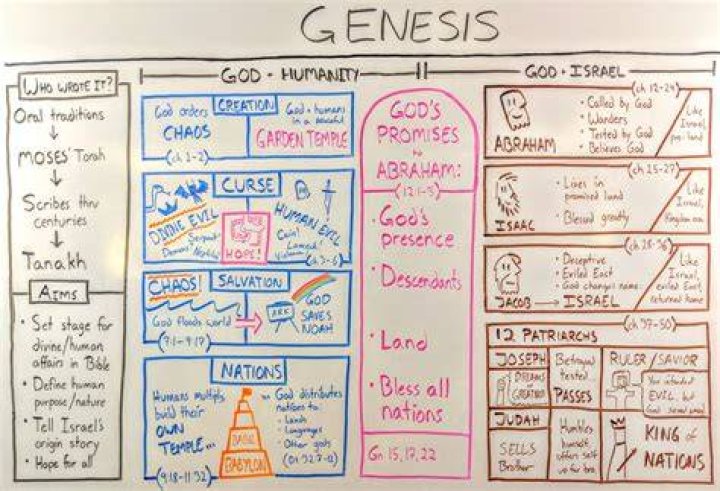 GENESIS
WHO WROTE IT?
Oral traditions
MOSES' Torah
Scribes thru
centuries
Tanakh
AIMS
• Set stage for
divine/human
affairs in Bible
• Define human
purpose/nature
• Tell Israel's
origin story
• Hope for all
GOD • HUMANITY
CREATION
God orders
CHAOS
God + humans
in a peaceful
GARDEN TEMPLE
(ch 1-2)
CURSE
DIVINE EVIL
Serpent
HOPE!
HUMAN EVIL
Cain
Lamech
Violence
(ch 3-6)
CHAOS!
SALVATION
God floods world
ARK
GOD
SAVES
NOAH
(7:1-9:17)
NATIONS
Humans multiply
build their
OWN
TEMPLE...
BABYLON
... God distributes
nations to:
- Lands
- Languages
- Other gods
(Dt 32:7-9)
(9:18-11:32)
GOD'S
PROMISES
to
ABRAHAM:
(12:1-3)
• God's
presence
• Descendants
• Land
• Bless all
nations
Gn 15, 17, 22
GOD • ISRAEL
(ch 12-24)
ABRAHAM
• Called by God
• Wanders
• Tested by God
• Believes God
Like
Israel,
pre-land
(ch 25-27)
ISAAC
• Lives in
promised land
• Blessed greatly
Like
Israel,
Kingdom era
(ch 28-36)
JACOB
ISRAEL
• Deceptive
• Exiled East
• God changes name
Like
Israel,
exiled East,
returned home
(ch 37-50)
12 PATRIARCHS
JOSEPH
DREAMS of
GREATNESS
Betrayed
tested
PASSES
RULER/SAVIOR
You intended
EVIL, but
God
JUDAH
SELLS
Brother
Humbles
himself
offers self
up for bro
KING of
NATIONS